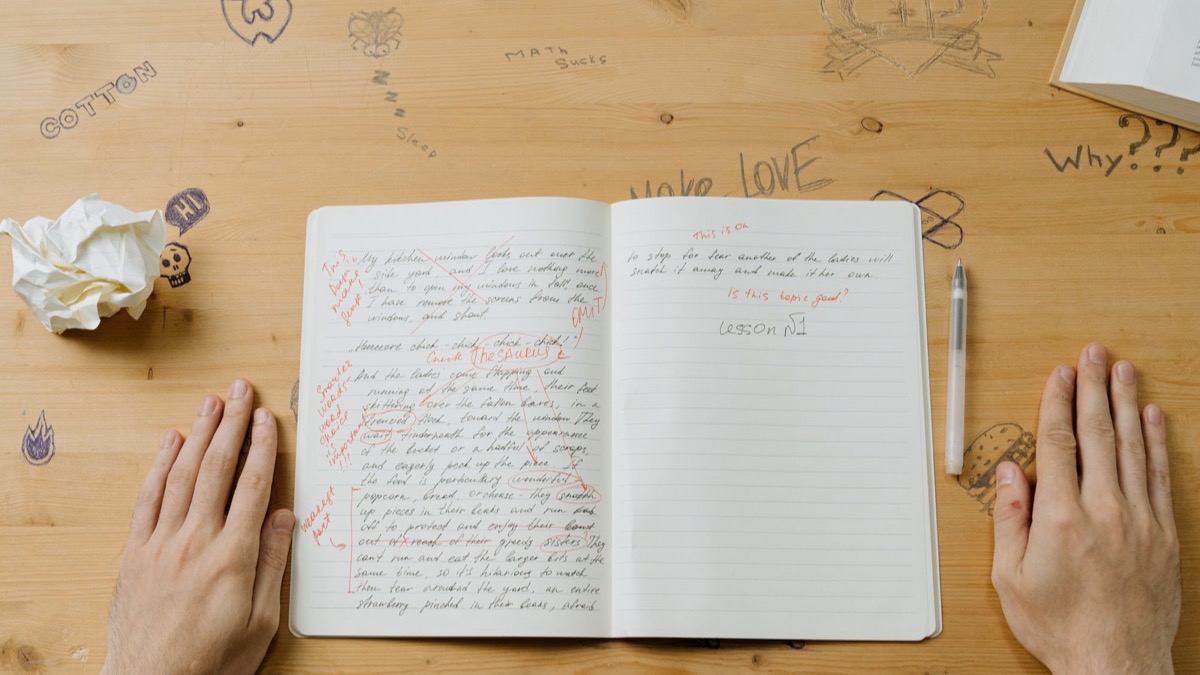 COTTON
NNN
Sleep
MATH
SUCKS
MAKE LOVE
Why???
HI
My kitchen window looks out over the
side yard, and I love nothing more
than to open my windows in fall, once
I have remove the screens from the
windows, and shout.
OMIT
chick - chick - chick - chick!"
THESAURUS
And the ladies come and
running at the same time, their feet
skittering over the fallen leaves, in a
flock, toward the window. They
wait underneath for the appearance
of the bucket or a handful of scraps,
and eagerly peck up the piece. If
the food is particulary wonderful
popcorn, bread, or cheese - they smooth
up pieces in their beaks and run
off to protect and enjoy their
out of reach of their greedy sisters. They
can't run and eat the larger bits at the
same time, so it's hilarious to watch
them tear around the yard, an entire
strawberry pinched in their beaks, afraid
word
choice
is
important
!!!
weakest
part
This is
to stop for fear another of the ladies will
snatch it away and make it her own
Is this topic good?
Lesson №1